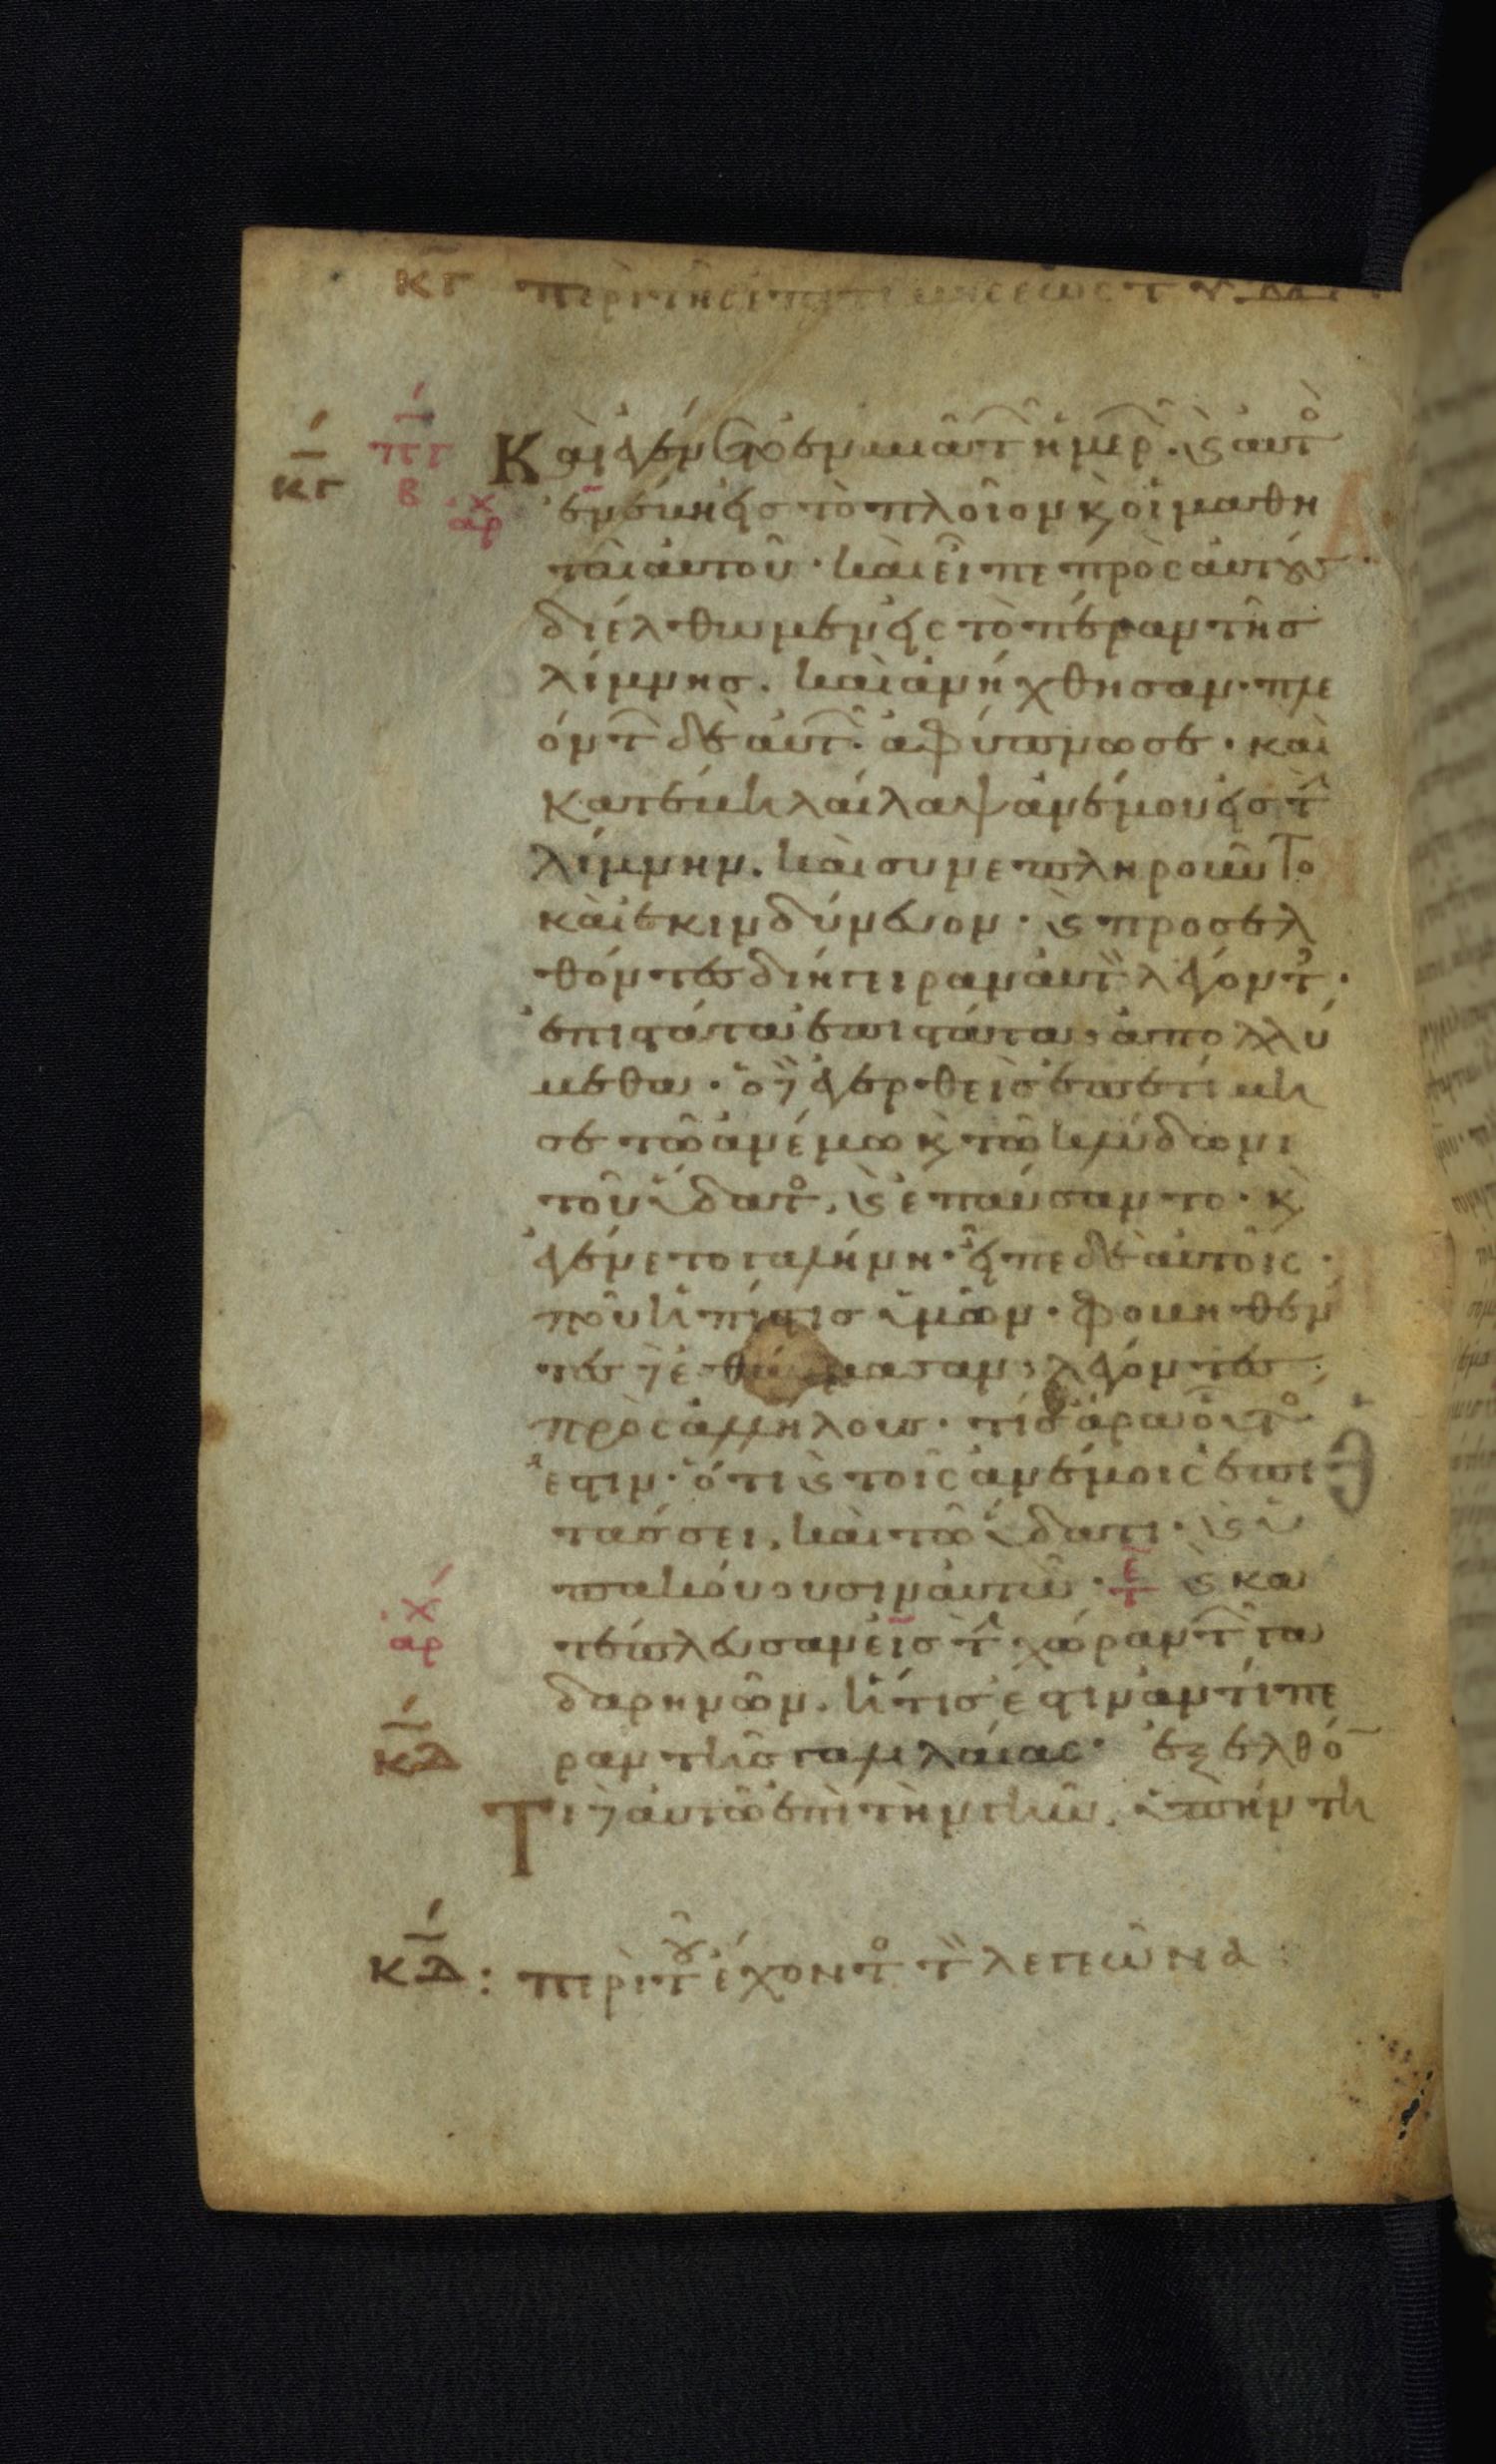 κγ περὶ τῆς ἐπιτιμήσεως τ υδατ
κγ πγ β Καὶ ἐγένετο ἐν μιᾷ τ ἡμερ · κ αυτ
αρχ ἐνέβη εἰς τὸ πλοῖον κ οἱ μαθη
ταὶ αὐτοῦ · καὶ εἶπε πρὸς αὐτούς ·
διέλθωμεν εἰς τὸ πέραν τῆς
λίμνης . καὶ ἀνήχθησαν · πλε
όντ δὲ αὐτ · ἀφύπνωσε · καὶ
κατέβη λαίλαψ ἀνέμου εἰς τ
λίμνην . καὶ συνεπληροῦντο
καὶ ἐκινδύνευον · κ προσελ
θόντες διήγειραν αὐτ λέγοντ ·
ἐπιστάτα ἐπιστάτα · ἀπολλύ
μεθα · ὁ δ ἐγερθεὶς ἐπετίμη
σε τῶ ἀνέμω κ τῶ κλύδωνι
τοῦ ὕδατ . κ ἐπαύσαντο · κ
ἐγένετο γαλήνη · εἶπε δὲ αὐτοῖς ·
ποῦ ἡ πίστις ὑμῶν · φοβηθέν
τες δ ἐθαύμασαν · λέγοντες
πρὸς ἀλλήλους · τίς ἄρα οὗτ
ἐστιν · ὅτι κ τοῖς ἀνέμοις ἐπι
τάσσει , καὶ τῶ ὕδατι · κ ὑ
πακούουσιν αὐτῶ · τε κ κα
αρχ τέπλευσαν εἰς τ χώραν τ γα
δαρηνῶν . ἥτις ἐστιν ἀντίπε
κδ ραν τῆς γαλιλαίας · ἐξελθό
Τι δ αὐτῶ ἐπὶ τὴν γῆν . ὑπήντη
κδ : περὶ τ ἔχοντ τ λεγεῶνα :